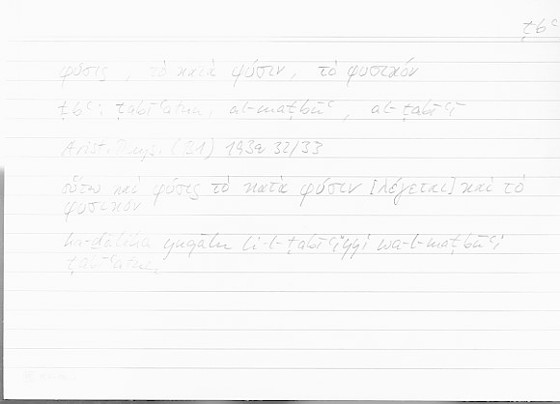 ṭbʿ
φύσις, τὸ κατὰ φύσιν, τὸ φυσικόν
ṭbʿ: ṭabīʿatun, al-maṭbūʿ, al-ṭabīʿī
Arist. Phys. (B1) 193a 32/33
οὕτω καὶ φύσις τὸ κατὰ φύσιν [λέγεται] καὶ τὸ
φυσικόν
ka-ḏālika yuqālu li-l-ṭabīʿiyyi wa-l-maṭbūʿi
ṭabīʿatun.